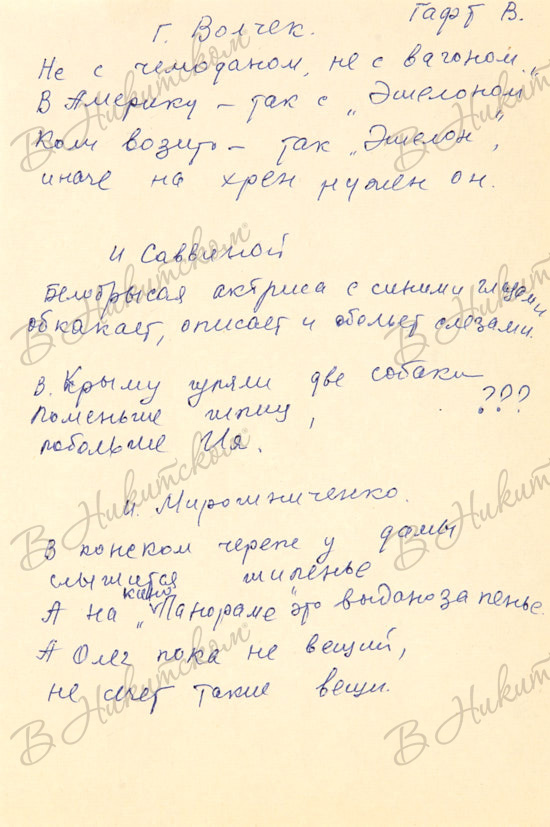 Гафт В.
Г. Волчек.
Не с чемоданом, не с вагоном
В Америку – так с „Эшелоном"
Коли возить – так „Эшелон",
иначе на хрен нужен он.
И Саввиной
Белобрысая актриса с синими глазами
обкакает, описает и обольет слезами.
В. Крыму гуляли две собаки
поменьше шпиц, ???
побольше Ия.
И. Мирошниченко.
В конском черепе у дамы
слышится шипенье
кино
А на „Панораме" это выдано за пенье.
А Олег пока не вещий,
не сечет такие вещи.
В. Никитском